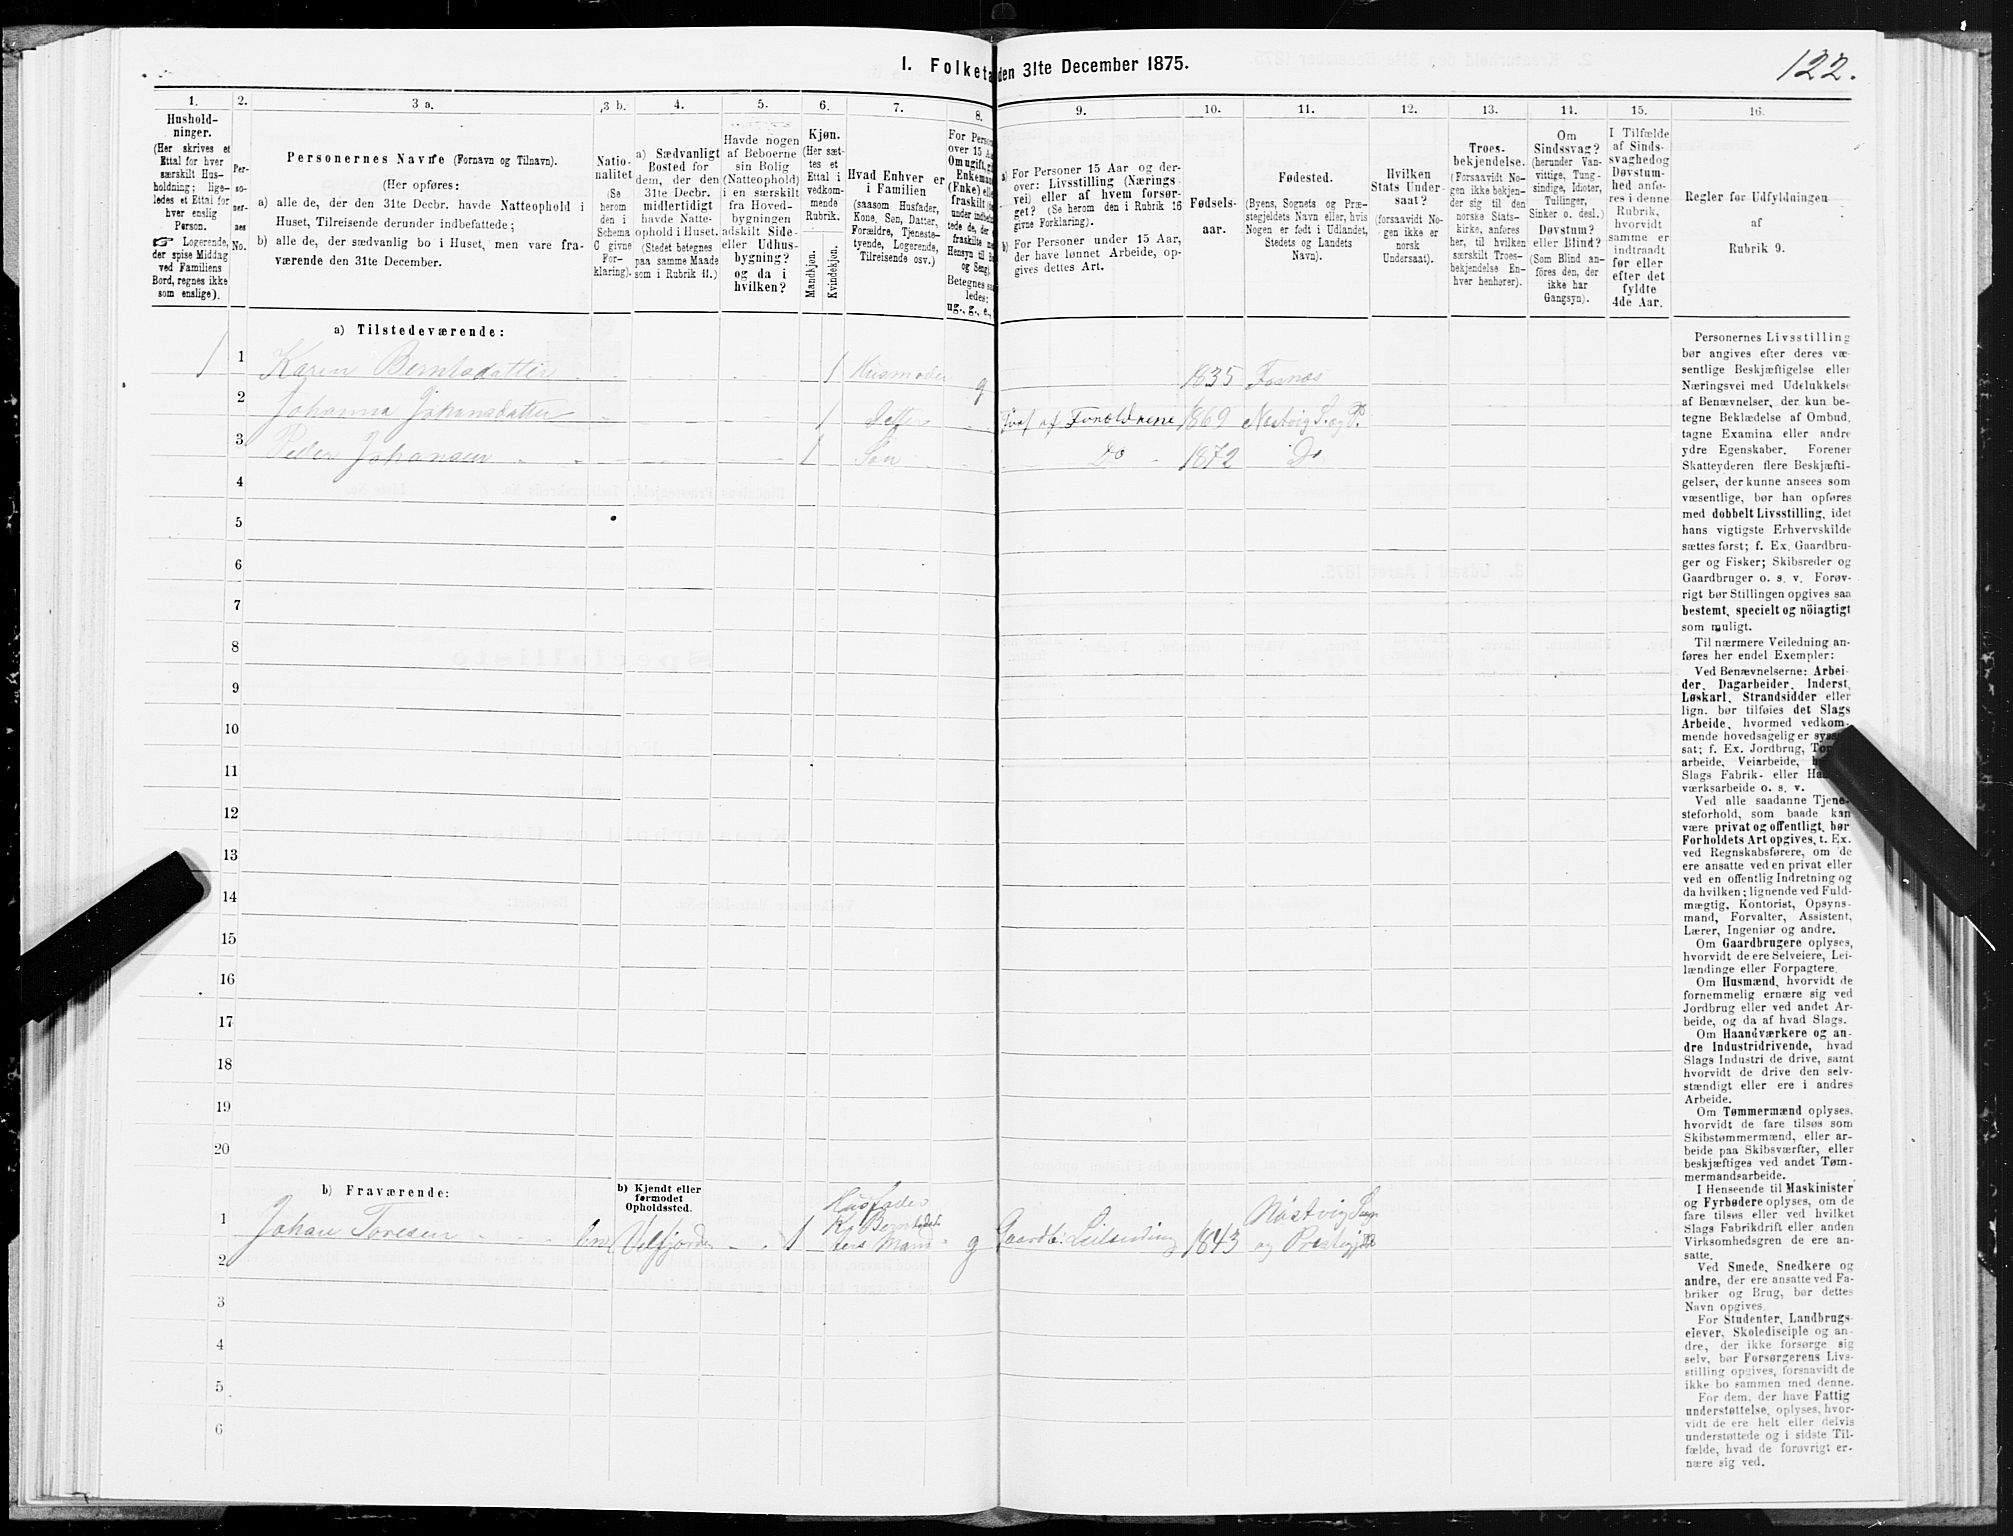 122.
I. Folketa den 31te December 1875.
1.
Hushold-
ninger.
(Her skrives et
Ettal for hver
særskilt Hus-
holdning; lige-
ledes et Ettal for
hver enslig
Person.
☞ Logerende,
der spise Middag
ved Familiens
Bord, regnes ikke
som enslige).
2.
Per-
so-
ner-
nes
No.
3 a.
Personernes Navne (Fornavn og Tilnavn).
(Her opføres:
a) alle de, der den 31te Decbr. havde Natteophold i
Huset, Tilreisende derunder indbefattede;
b) alle de, der sædvanlig bo i Huset, men vare fra-
værende den 31te December.
3 b.
Natio-
nalitet
(Se
herom
den i
Schema
C givne
For-
klaring).
4.
a) Sædvanligt
Bosted for
dem, der den
31te Decbr.
midlertidigt
havde Natte-
ophold i Huset.
(Stedet betegnes
paa samme Maade
som i Rubrik 11.)
5.
Havde nogen
af Beboerne
sin Bolig
(Natteophold)
i en særskilt
fra Hoved-
bygningen
adskilt Side-
eller Udhus-
bygning?
og da i
hvilken?
6.
Kjøn.
(Her sæt-
tes et
Ettal i
vedkom-
mende
Rubrik.
Mandkjøn.
Kvindekjøn.
7.
Hvad Enhver er
i Familien
(saasom Husfader,
Kone, Søn, Datter,
Forældre, Tjeneste-
tyende, Logerende,
Tilreisende osv.)
8.
For Person
over 15 Aa
Om ugift, g
Enkeman
(Enke) elle
fraskilt (
under indbe
tede de, der
fraskilte m
Hensyn til B
og Seng).
Betegnes saa
ledes:
ug., g., e.,
9.
a) For Personer 15 Aar og der-
over: Livsstilling (Nærings-
vei) eller af hvem forsør-
get? (Se herom den i Rubrik 16
givne Forklaring).
b) For Personer under 15 Aar,
der have lønnet Arbeide, op-
gives dettes Art.
10.
Fødsels-
aar.
11.
Fødested.
(Byens, Sognets og Præ-
stegjeldets Navn eller, hvis
Nogen er født i Udlandet,
Stedets og Landets
Navn).
12.
Hvilken
Stats Under-
saat?
(forsaavidt No-
gen ikke er
norsk
Undersaat).
13.
Troes-
bekjendelse.
(Forsaavidt No-
gen ikke bekjen-
der sig til den
norske Stats-
kirke, anføres
her, til hvilken
særskilt Troes-
bekjendelse En-
hver henhører).
14.
Om
Sindssvag?
(herunder Van-
vittige, Tung-
sindige, Idioter,
Tullinger,
Sinker o. desl.)
Døvstum?
eller Blind?
(Som Blind an-
føres den, der
ikke har
Gangsyn).
15.
I Tilfælde
af Sinds-
svaghedog
Døvstum-
hed anfø-
res i denne
Rubrik,
hvorvidt
samme er
indtraadt
før eller
efter det
fyldte
4de Aar.
16.
Regler for Udfyldningen
af
Rubrik 9.
a) Tilstedeværende:
1 1 Karen Berntsdatter 1 Husmoder g 1835 Fosnæs
2 Johanna Johansdatter 1 Datter af Forældrene 1869 Næstvig S. og P.
3 Peder Johansen 1 Søn Do 1872 Do
4
5
6
7
8
9
10
11
12
13
14
15
16
17
18
19
20
b) Fraværende:
b) Kjendt eller
formodet
Opholdssted.
1 Johan Toresen Velfjorden 1 Husfader K. Berntsdat-ters Mand g Gaardb: Leilending 1843 og Præstegjeld
2
3
4
5
6
Personernes Livsstilling
bør angives efter deres væ-
sentlige Beskjæftigelse eller
Næringsvei med Udelukkelse
af Benævnelser, der kun be-
tegne Beklædelse af Ombud,
tagne Examina eller andre
ydre Egenskaber. Forener
Skatteyderen flere Beskjæfti-
gelser, der kunne ansees som
væsentlige, bør han opføres
med dobbelt Livsstilling, idet
hans vigtigste Erhvervskilde
sættes først; f. Ex. Gaardbru-
ger og Fisker; Skibsreder og
Gaardbruger o. s. v. Forøv-
rigt bør Stillingen opgives saa
bestemt, specielt og nöiagtigt
som muligt.
Til nærmere Veiledning an-
føres her endel Exempler:
Ved Benævnelserne: Arbei-
der, Dagarbeider, Inderst,
Løskarl, Strandsidder eller
lign. bør tilføies det Slags
Arbeide, hvormed vedkom-
mende hovedsagelig er
sat; f. Ex. Jordbrug,
arbeide, Veiarbeide,
Slags Fabrik- eller
værksarbeide o. s. v.
Ved alle saadanne Tjene-
steforhold, som baade kan
være privat og offentligt, bør
Forholdets Art opgives, t. Ex.
ved Regnskabsførere, om de
ere ansatte ved en privat eller
ved en offentlig Indretning og
da hvilken; lignende ved Fuld-
mægtig, Kontorist, Opsyns-
mand, Forvalter, Assistent,
Lærer, Ingeniør og andre.
Om Gaardbrugere oplyses,
hvorvidt de ere Selveiere, Lei-
lændinge eller Forpagtere.
Om Husmænd, hvorvidt de
fornemmelig ernære sig ved
Jordbrug eller ved andet Ar-
beide, og da af hvad Slags.
Om Haandværkere og an-
dre Industridrivende, hvad
Slags Industri de drive, samt
hvorvidt de drive den selv-
stændigt eller ere i andres
Arbeide.
Om Tømmermænd oplyses,
hvorvidt de fare tilsøs som
Skibstømmermænd, eller ar-
beide paa Skibsværfter, eller
beskjæftiges ved andet Tøm-
mermandsarbeide.
I Henseende til Maskinister
og Fyrbødere oplyses, om de
fare tilsøs eller ved hvilket
Slags Fabrikdrift eller anden
Virksomhedsgren de ere an-
satte.
Ved Smede, Snedkere og
andre, der ere ansatte ved Fa-
briker og Brug, bør dettes
Navn opgives.
For Studenter, Landbrugs-
elever, Skoledisciple og an-
dre, der ikke forsørge sig
selv, bør Forsørgerens Livs-
stilling opgives, forsaavidt de
ikke bo sammen med denne.
For dem, der have Fattig-
understøttelse, oplyses, hvor-
vidt de ere helt eller delvis
understøttede og i sidste Til-
fælde, hvad de forøvrigt er-
nære sig ved.